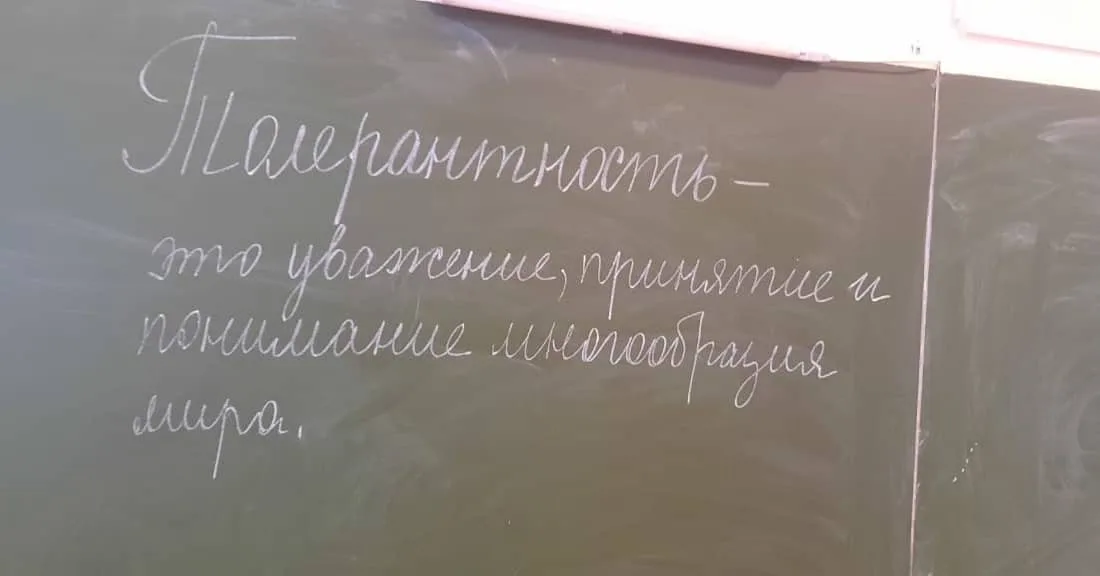 Толерантность –
это уважение, принятие и
понимание многообразия
мира.